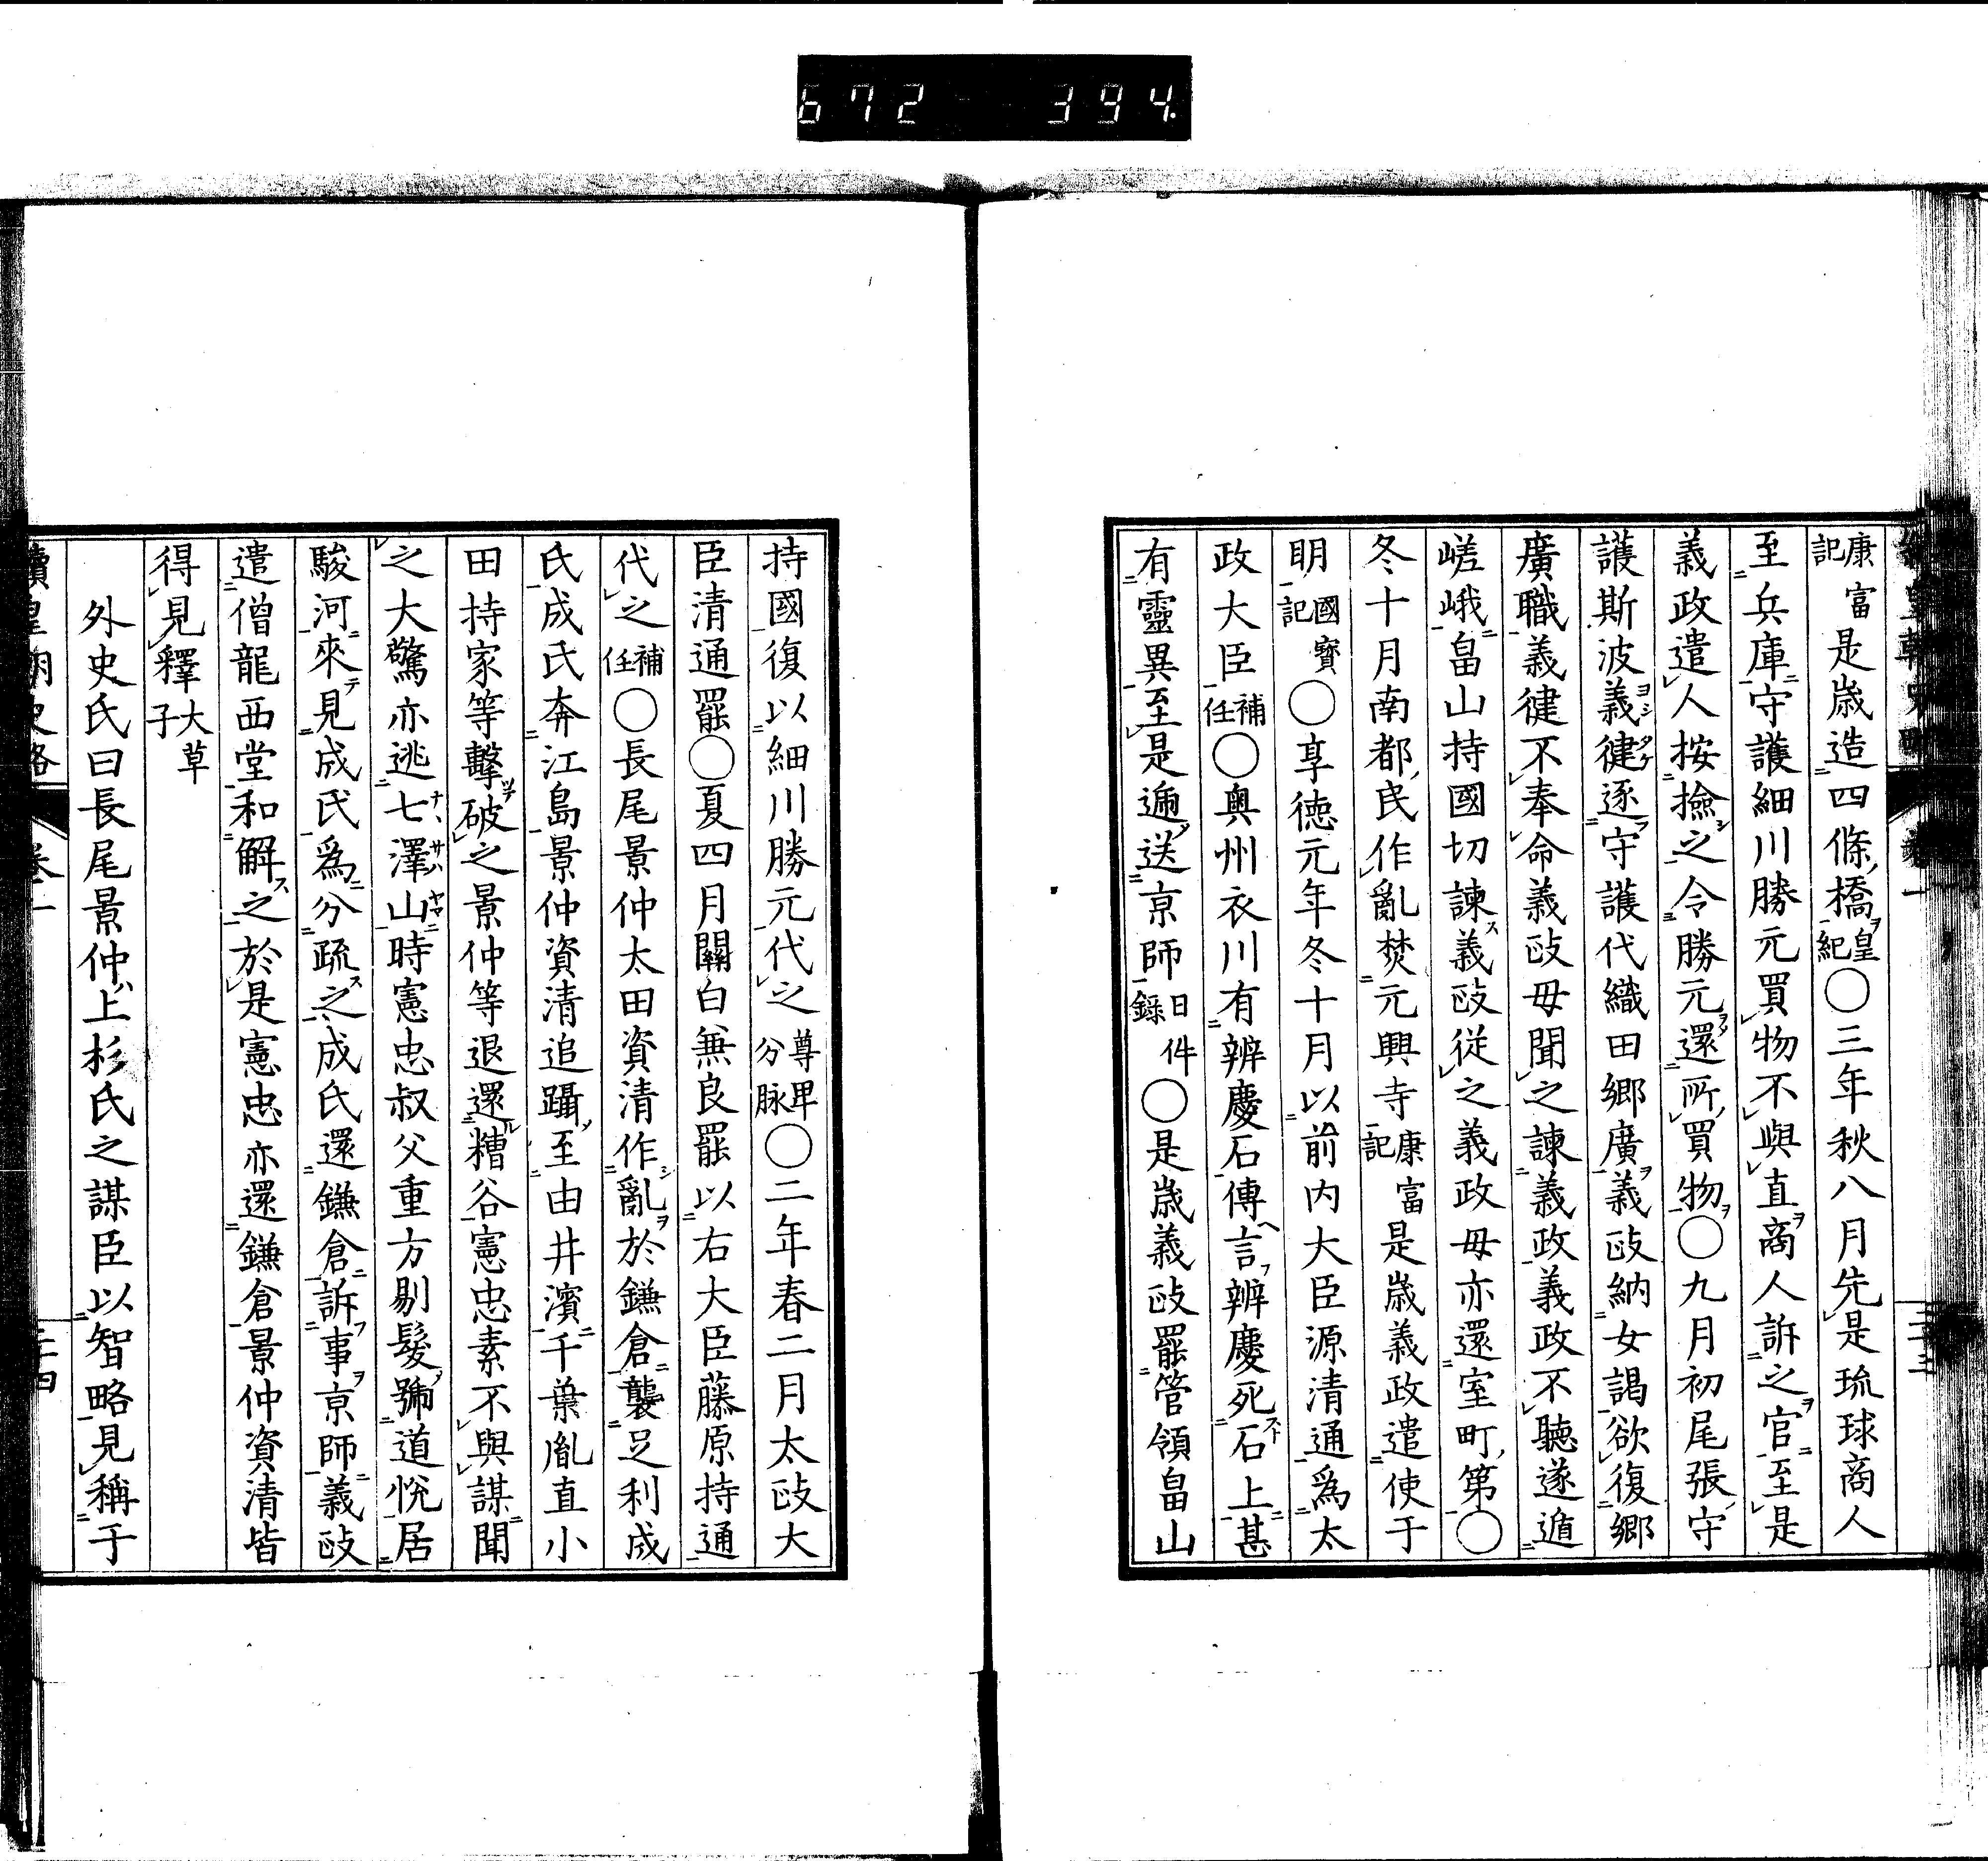 672 394
康富記是歳造四條橋皇紀〇三年秋八月先是琉球商人
至兵庫守護細川勝元買物不與直商人訴之官至是
義政遣人按撿之令勝元還所買物〇九月初尾張守
護斯波義健逐守護代織田郷廣義政納女謁欲復郷
廣職義健不奉命義政母聞之諫義政義政不聽遂遁
嵯峨畠山持國切諫義政從之義政母亦還室町第〇
冬十月南都民作亂焚元興寺康富記是歳義政遣使于
明國寶記〇享徳元年冬十月以前内大臣源清通爲太
政大臣補任〇奥州衣川有辨慶石傳言辨慶死石上甚
有靈異至是遞送京師日件錄〇是歳義政罷管領畠山
持國復以細川勝元代之尊卑分脉〇二年春二月太政大
臣清通罷〇夏四月關白兼良罷以右大臣藤原持通
代之補任〇長尾景仲太田資清作亂於鎌倉襲足利成
氏成氏奔江島景仲資清追躡至由井濱千葉胤直小
田持家等擊破之景仲等退還糟谷憲忠素不與謀聞
之大驚亦逃七澤山時憲忠叔父重方剔髮號道悅居
駿河來見成氏爲分疏之成氏還鎌倉訴事京師義政
遣僧龍西堂和解之於是憲忠亦還鎌倉景仲資清皆
得見釋大草子
外史氏曰長尾景仲上杉氏之謀臣以智略見稱于
續皇朝史略 卷一